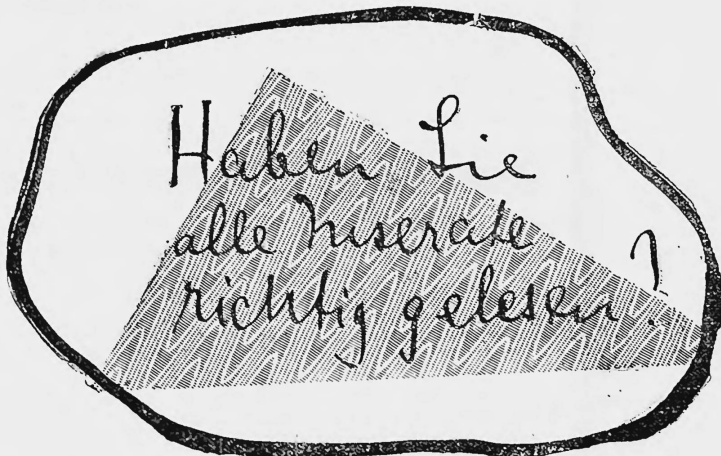 Haben Sie
alle Inserate
richtig gelesen?